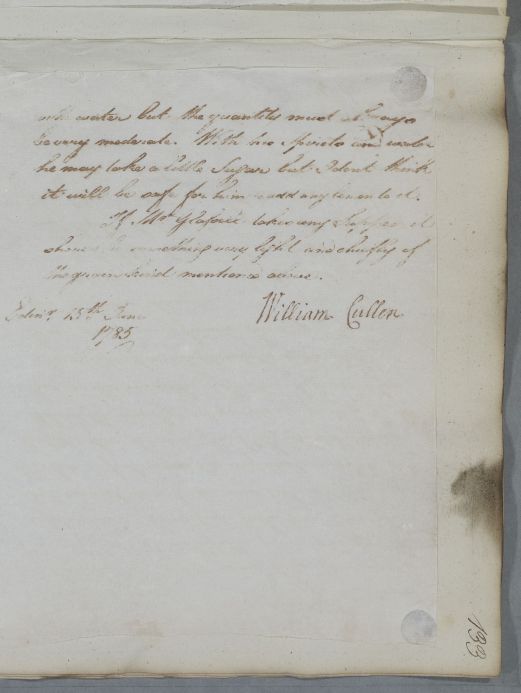 with water but the quantity must always
be very moderate. With his Spirits and water
he may take a little Sugar but I dont think
it will be safe for him to add any lemon to it.
If Mr Glasfurd takes any Supper it
should be something very light and chiefly of
the grain kind mentioned above.
William Cullen
Edinr. 15th June
1785
133